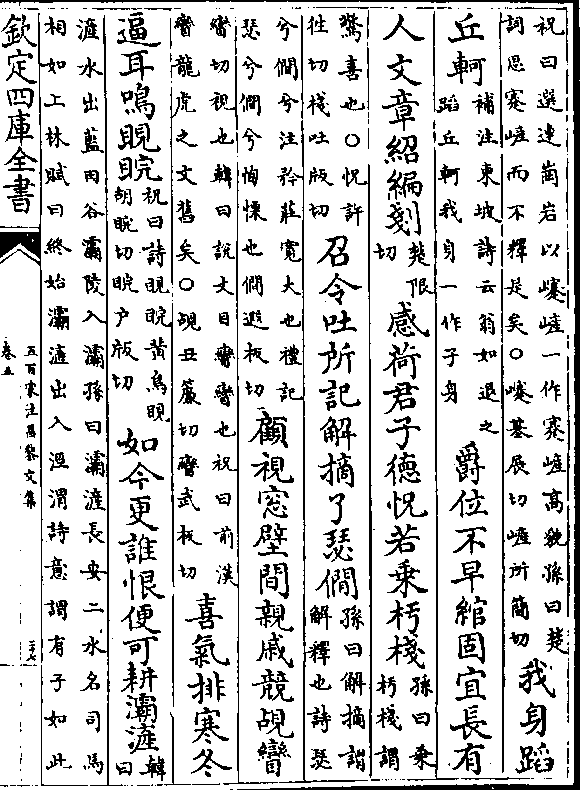 祝曰選連崗岩以嵼一作蹇嵼高貌孫曰楚
詞思蹇嵼而不釋是矣○基展切嵼所簡切
我身蹈
丘軻
補注東坡詩云翁如退之
蹈丘軻我身一作子身
爵位不早綰固宜長有
人文章紹編剗
楚限
切
感荷君子德怳若乘朽棧
孫曰乘
朽棧謂
驚喜也○怳許
往切棧吐版切
召令吐所記解摘了瑟僴
孫曰解摘謂
解釋也詩瑟
兮僴兮注矜莊寛大也禮記
瑟兮僴兮恂慄也僴遐板切
顧視窓壁間親戚競覘矕
矕切視也韓曰說文目矕矕也祝曰前漢
矕龍虎之文舊矣○覘丑簾切矕武板切
喜氣排寒冬
逼耳鳴睍睆
祝曰詩睍睆黄鳥睍
胡睆切睆户版切
如今更誰恨便可耕灞滻
韓
曰
滻水出藍田谷灞陵入灞孫曰灞滻長安二水名司馬
相如上林賦曰終始灞滻出入涇渭詩意謂有子如此
欽定四庫全書
五百家注昌黎文集
卷五
三十七